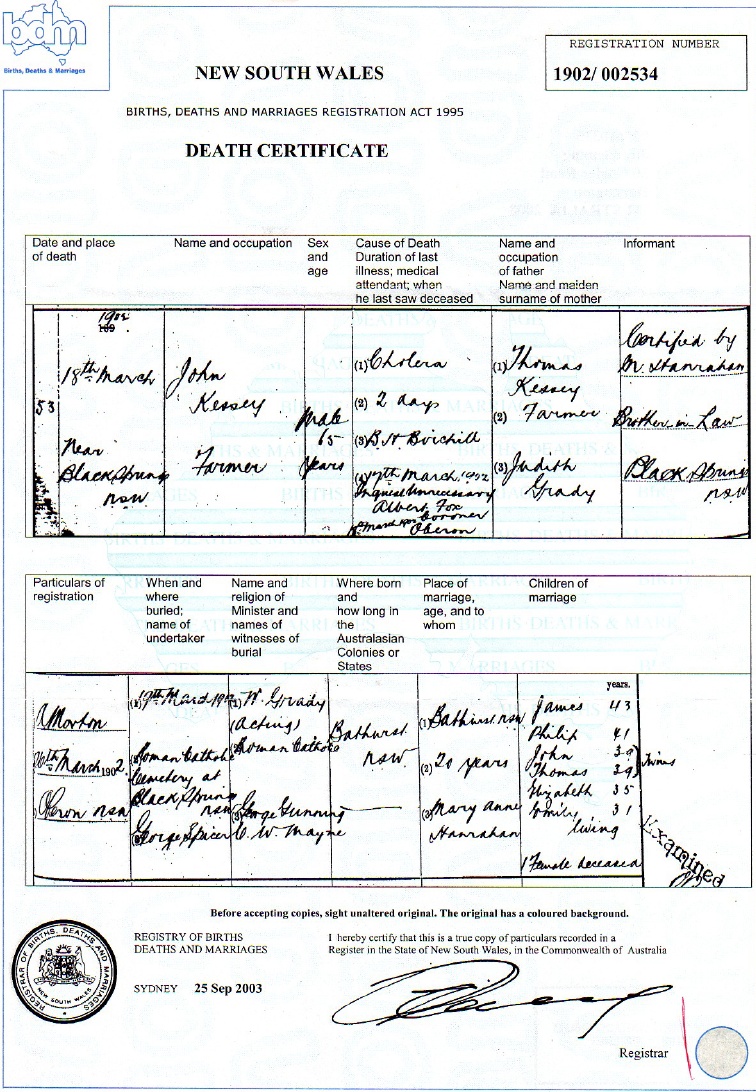 bdm
Births, Deaths & Marriages
REGISTRATION NUMBER
1902/ 002534
NEW SOUTH WALES
BIRTHS, DEATHS AND MARRIAGES REGISTRATION ACT 1995
DEATH CERTIFICATE
Date and place
of death
Name and occupation
Sex
and
age
Cause of Death
Duration of last
illness; medical
attendant; when
he last saw deceased
Name and
occupation
of father
Name and maiden
surname of mother
Informant
53
1902
189
18th March
Near
Black Springs
NSW
John
Kessey
Farmer
Male
65
Years
(1) Cholera
(2) 2 days
(3) B H
17th March, 1902
Inquest Unnecessary
Albert Fox
Coroner
Oberon
(1) Thomas
Kessey
(2) Farmer
(3) Judith
Grady
Certified by
Hanrahan
Brother in Law
Black Springs
NSW
Particulars of
registration
When and
where
buried;
name of
undertaker
Name and
religion of
Minister and
names of
witnesses of
burial
Where born
and
how long in
the
Australasian
Colonies or
States
Place of
marriage,
age, and to
whom
Children of
marriage
A Morton
March 1902
Oberon NSW
(1) 19th March 1902
Roman Catholic
Cemetery at
Black Springs
NSW
George Spicer
(1) W. Grady
(Acting)
Roman Catholic
(3) George Gunning
C. W. Mayne
Bathurst
NSW
(1) Bathurst NSW
(2) 20 years
(3) Mary Anne
Hanrahan
years.
James 43
Philip 41
John 39
Thomas 39 } Twins
Elizabeth 35
Emily 31
living
1 Female deceased
Examined
Before accepting copies, sight unaltered original. The original has a coloured background.
REGISTRAR OF BIRTHS, DEATHS AND MARRIAGES
NEW SOUTH WALES
REGISTRY OF BIRTHS
DEATHS AND MARRIAGES
SYDNEY 25 Sep 2003
I hereby certify that this is a true copy of particulars recorded in a
Register in the State of New South Wales, in the Commonwealth of Australia
Registrar